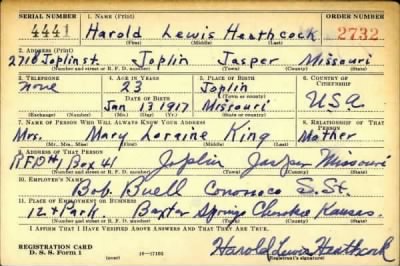 SERIAL NUMBER 1. NAME (Print) ORDER NUMBER
4441 Harold Lewis Heathcock 2732
(First) (Middle) (Last)
2. ADDRESS (Print)
2710 Joplin st. Joplin Jasper Missouri
(Number and street or R. F. D. number) (Town) (County) (State)
3. TELEPHONE 4. AGE IN YEARS 5. PLACE OF BIRTH 6. COUNTRY OF CITIZENSHIP
None 23 Joplin
DATE OF BIRTH (Town or county)
Jan 13 1917 Missouri USA
(Exchange) (Number) (Mo.) (Day) (Yr.) (State or country)
7. NAME OF PERSON WHO WILL ALWAYS KNOW YOUR ADDRESS 8. RELATIONSHIP OF THAT PERSON
Mrs. Mary Loraine King Mother
(Mr., Mrs., Miss) (First) (Middle) (Last)
9. ADDRESS OF THAT PERSON
RFD #1 Box 41 Joplin Jasper Missouri
(Number and street or R. F. D. number) (Town) (County) (State)
10. EMPLOYER'S NAME
Bob. Buell Conoco S. St.
11. PLACE OF EMPLOYMENT OR BUSINESS
12 & Park Baxter Springs Cherokee Kansas.
(Number and street or R. F. D. number) (Town) (County) (State)
I AFFIRM THAT I HAVE VERIFIED ABOVE ANSWERS AND THAT THEY ARE TRUE.
REGISTRATION CARD
D. S. S. FORM 1 (over) Harold Lewis Heathcock
(Registrant's signature)